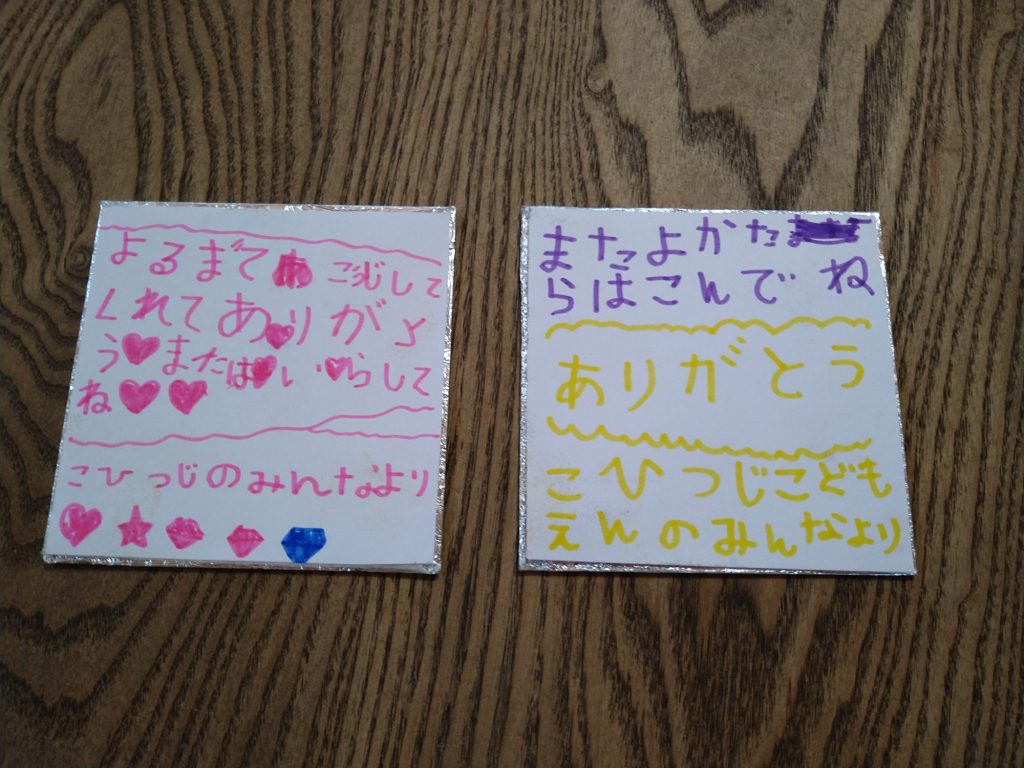 よるまで こうじして
くれてありがと
う♥または♥い♥らして
ね♥♥
こひつじのみんなより
またよかた
らはこんでね
ありがとう
こひつじこども
えんのみんなより